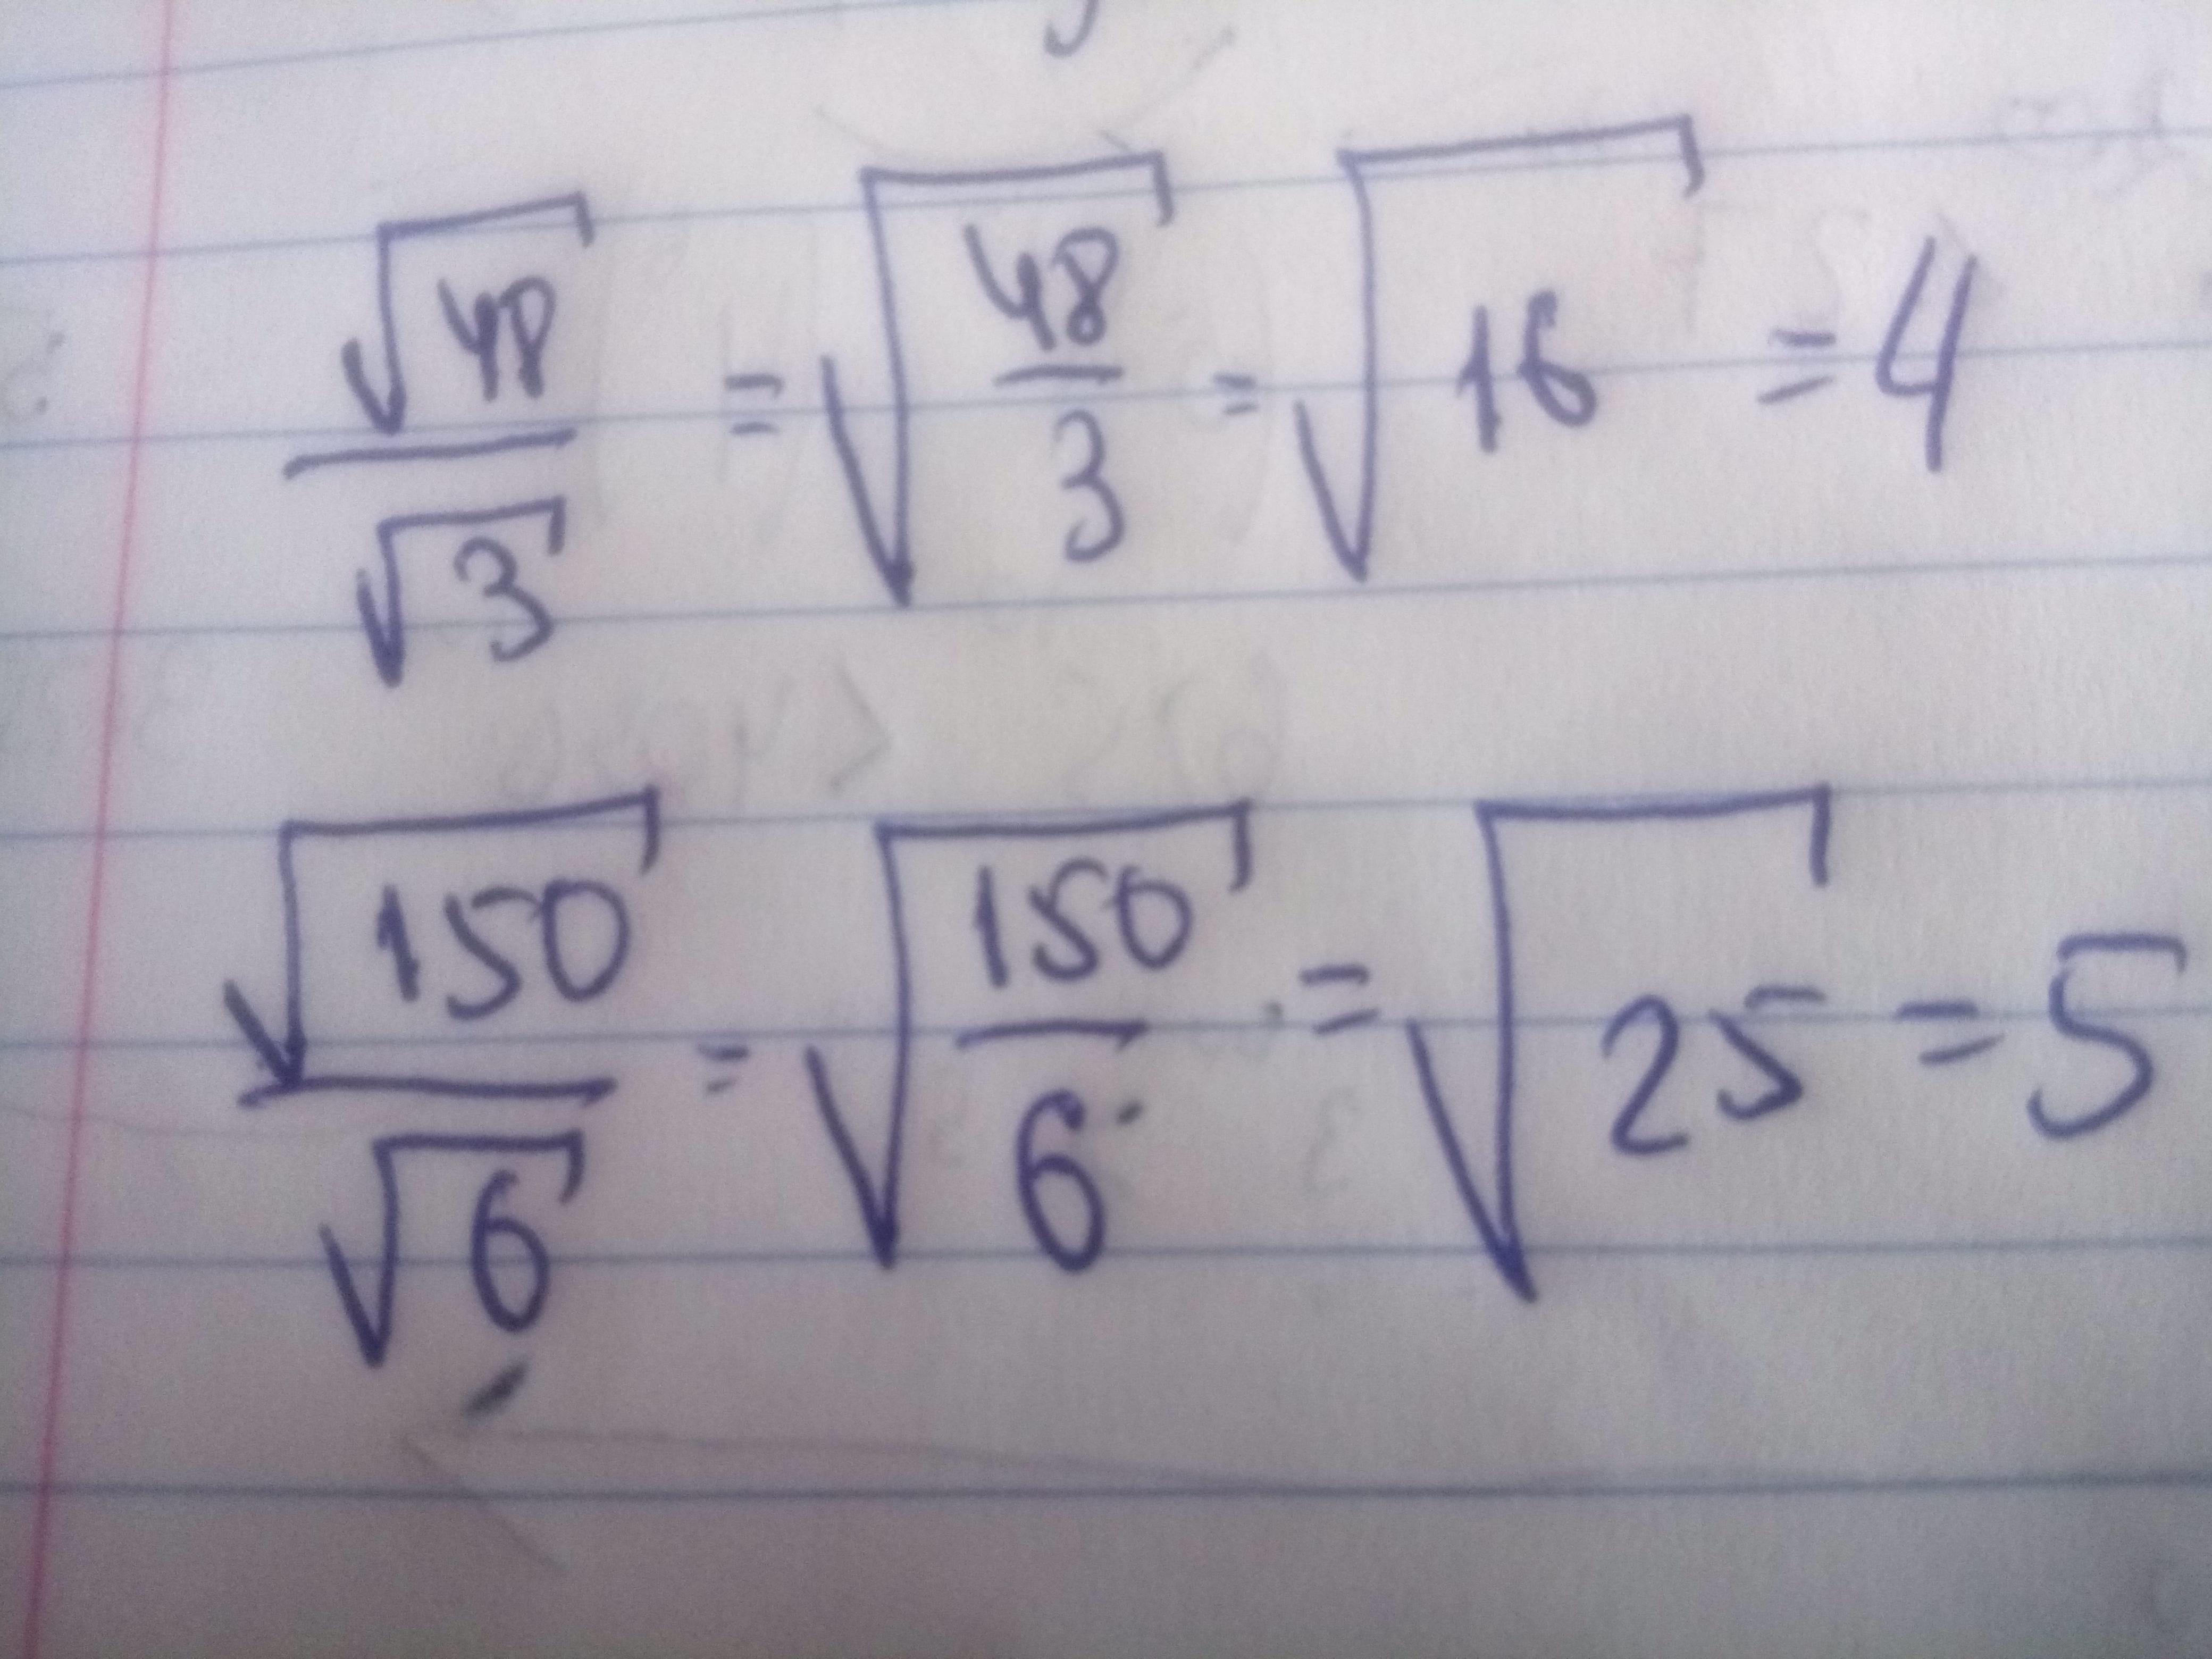 √48/√3 = √(48/3) = √16 = 4
√150/√6 = √(150/6) = √25 = 5